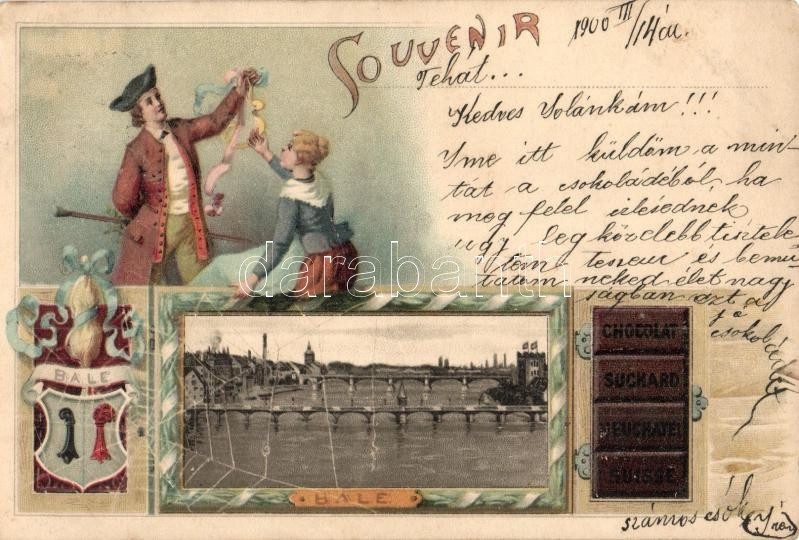 SOUVENIR
1900 III/14én.
Tehát...
Kedves Iolánkám!!!
Ime itt küldöm a min-
tát a csokoládéból, ha
meg felel izlésednek
ugy legközelebb tisztele-
tem teszem és bemu-
tatom neked élet nagy-
ságban ezt a
jó
csokoládét
darabanth.com
CHOCOLAT
SUCHARD
NEUCHATEL
SUISSE
BALE
BALE
számos csók